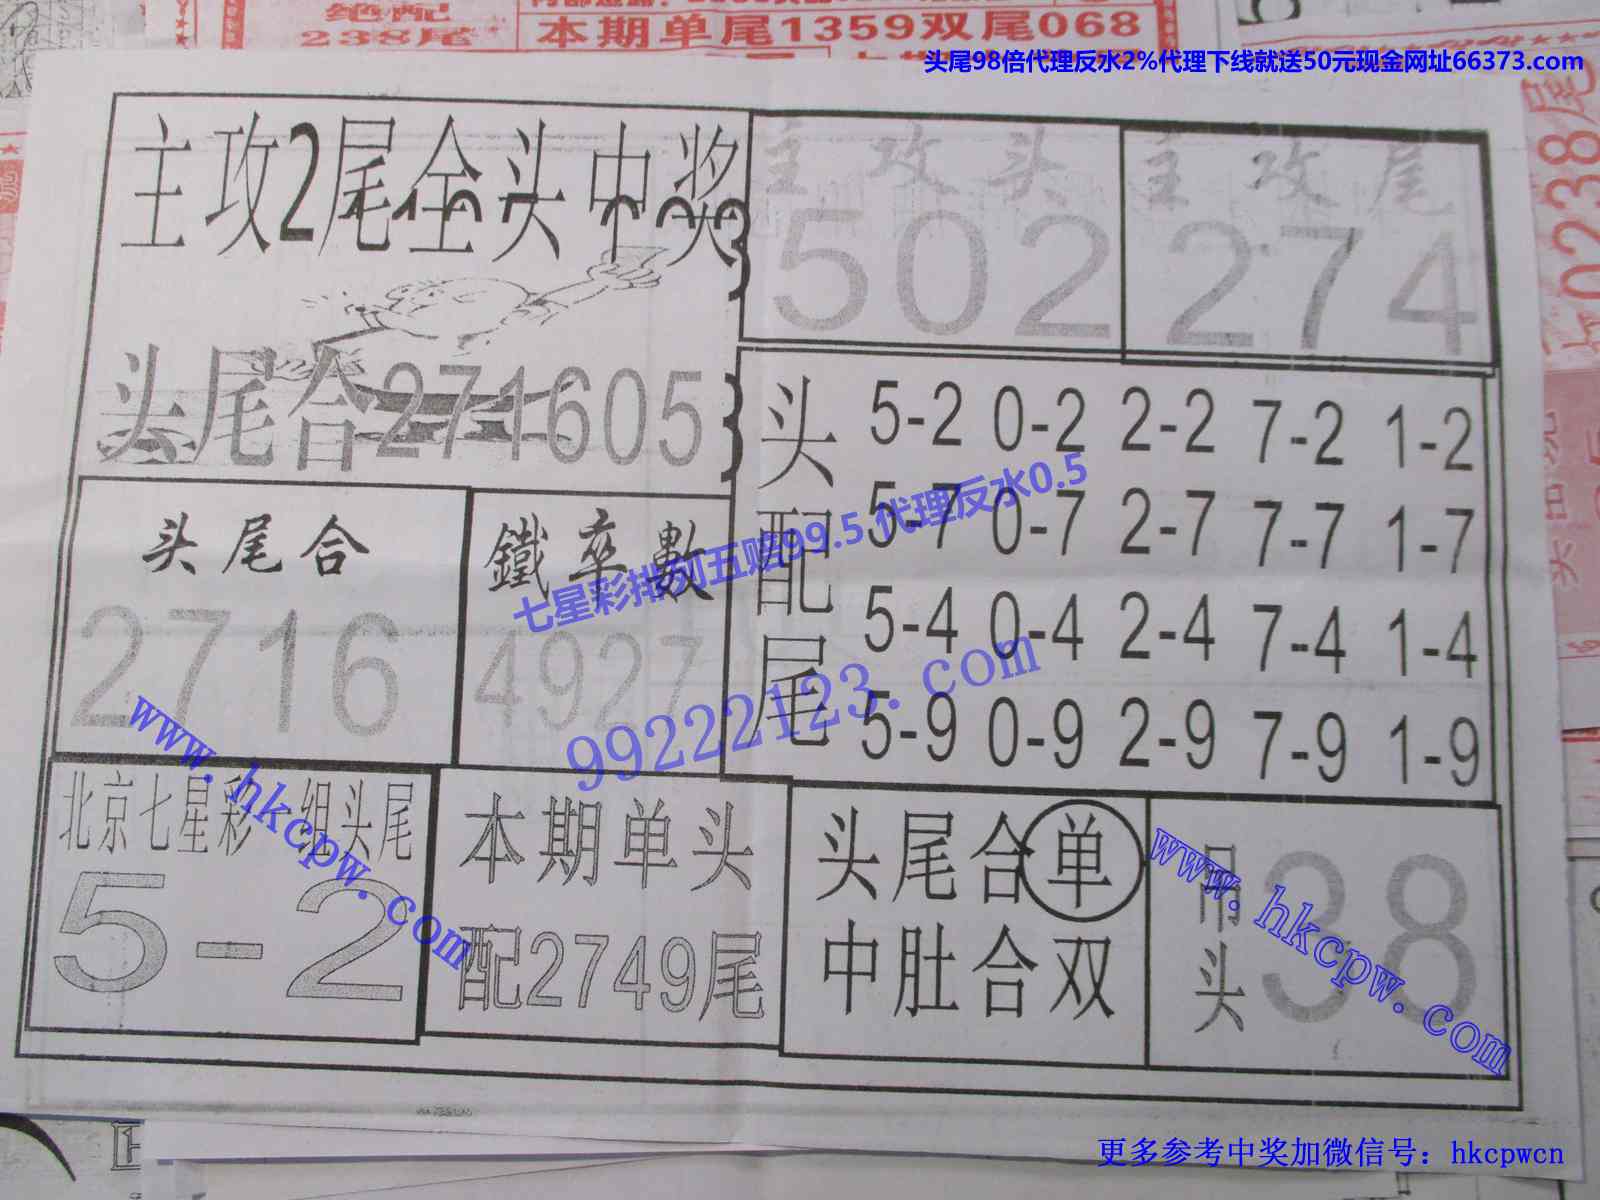 绝配
238尾
本期单尾1359双尾068
头尾98倍代理反水2%代理下线就送50元现金网址66373.com
0238尾
主攻2尾全头中奖
主攻头
502
主攻尾
274
头尾合271605
头配尾
5-2 0-2 2-2 7-2 1-2
5-7 0-7 2-7 7-7 1-7
5-4 0-4 2-4 7-4 1-4
5-9 0-9 2-9 7-9 1-9
头尾合
2716
鐵率數
4927
七星彩排列五赔99.5 代理反水0.5
99222123.com
www.hkcpw.com
北京七星彩 组头尾
5-2
本期单头
配2749尾
头尾合单
中肚合双
吊头
38
www.hkcpw.com
更多参考中奖加微信号：hkcpwcn